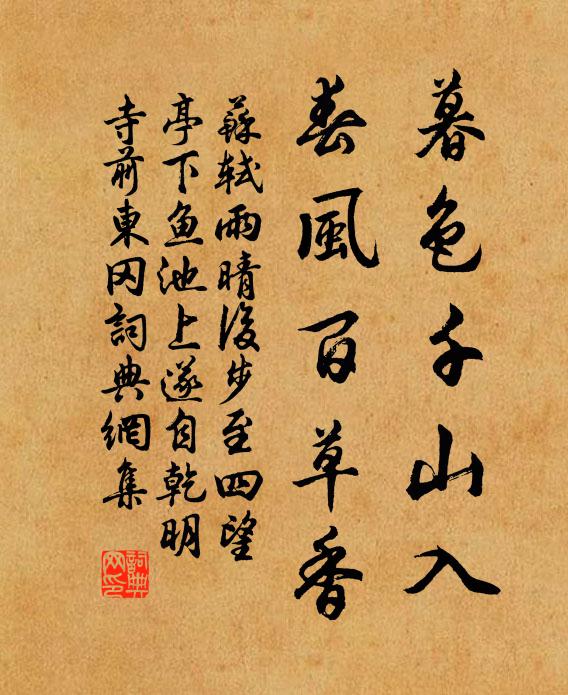 暮色千山入
春風百草香
蘇軾雨晴後步至四望
亭下魚池上遂自乾明
寺前東冈詞典網集
詞典
网印